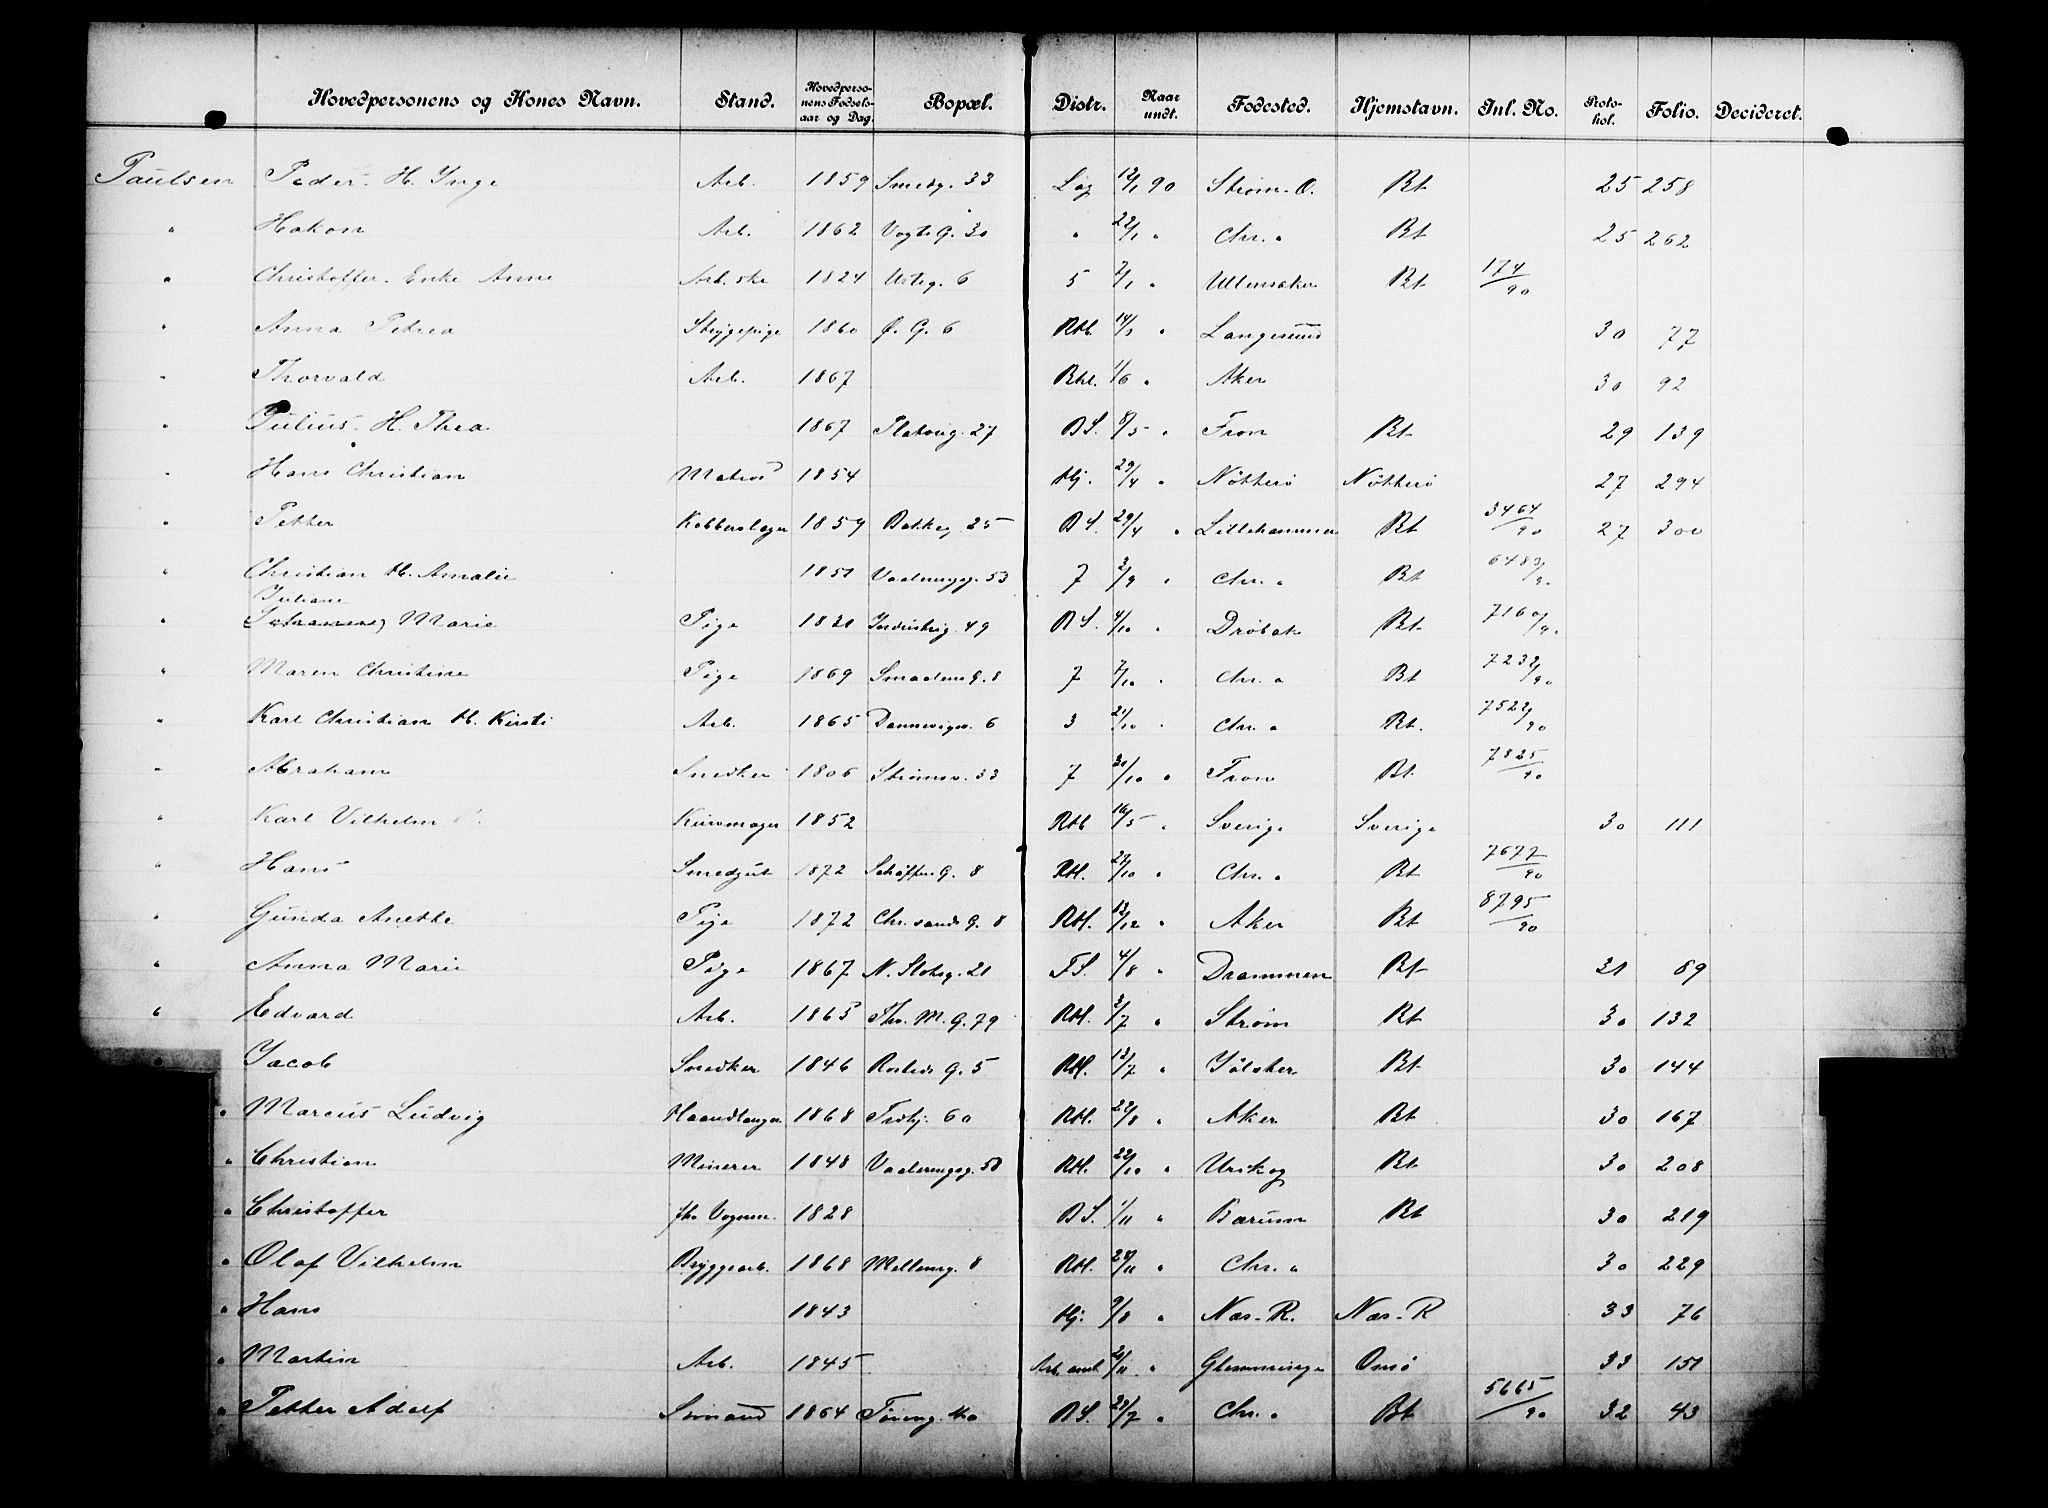 Hovedpersonens og Kones Navn. Stand. Hovedpersonens Fødselsaar og Dag. Bopæl. Distr. Naar undt. Fødested. Hjemstavn. Inl. No. Protokol. Folio. Decideret.
Paulsen Peder H. Inge Arb. 1859 Smedg. 33 Lag 12/1 90 Strøm. O. Bt 25 258
" Hakon Arb. 1862 Vogts G. 30 " 22/1 " Chr. a Bt 25 262
" Christoffer. Enke Anne Arb.ske 1824 Urteg. 6 5 7/1 " Ullensaker Bt 174/90
" Anna Petrea Strygepige 1860 Ø. G. 6 RH. 14/3 " Langesund 30 77
" Thorvald Arb. 1867 RH. 1/6 " Aker 30 92
" Julius H. Thea 1867 Platoug. 27 BS. 8/5 " Fron Bt 29 139
" Hans Christian Matros 1854 Hj. 29/4 " Nøtterø Nøtterø 27 294
" Petter Kobberslager 1859 Bakkeg. 25 BS. 29/4 " Lillehammer Bt 3464/90 27 300
" Christian H. Amalie 1851 Vaalerengg. 53 7 2/9 " Chr. a Bt 6483/90
Juliane
" Marie Pige 1820 Industrig. 49 BS. 4/10 " Drøbak Bt 7160/90
" Maren Christine Pige 1869 Smaalens G. 8 7 7/10 " Chr. a Bt 7232/90
" Karl Christian H. Kirsti Arb. 1865 Dannevigsv. 6 3 21/10 " Chr. a Bt. 7522/90
" Abraham Snedker 1806 Strømsv. 33 7 30/10 " Fron Bt 7825/90
" Karl Vilhelm Kursmager 1852 RH 16/5 " Sverige Sverige 30 111
" Hans Smedgut 1872 Schøffers G. 8 RH. 27/10 " Chr. a Bt 7677/90
" Gunda Anette Pige 1872 Chr.sands G. 8 RH. 12/12 " Aker Bt 8795/90
" Anna Marie Pige 1867 N. Slotsg. 21 FS. 4/8 " Drammen Bt 31 89
" Edvard Arb. 1865 Thv. M. G. 79 RH. 2/7 " Strøm Bt 30 132
" Jacob Snedker 1846 Rosteds G. 5 RH. 12/7 " Jølster Bt 30 144
" Marcus Ludvig Haandlanger 1868 Toftg. 60 RH. 22/8 " Aker Bt 30 167
" Christian Minerer 1848 Vaalerengsg. 50 RH. 22/10 " Urskog Bt 30 208
" Christoffer fhv Vognm. 1828 BS. 1/11 " Bærum Bt 30 219
" Olaf Vilhelm Bryggearb. 1868 Mellemg. 8 RH. 28/11 " Chr. a 30 229
" Hans 1843 Hj. 9/8 " Næs-R. Næs-R 33 76
" Martin Arb. 1845 Arb. anst. 21/11 " Glemminge Onsø 33 151
" Petter Adolf Sømand 1864 Tøieng. 40 BS. 23/7 " Chr. a Bt 5665/90 32 43